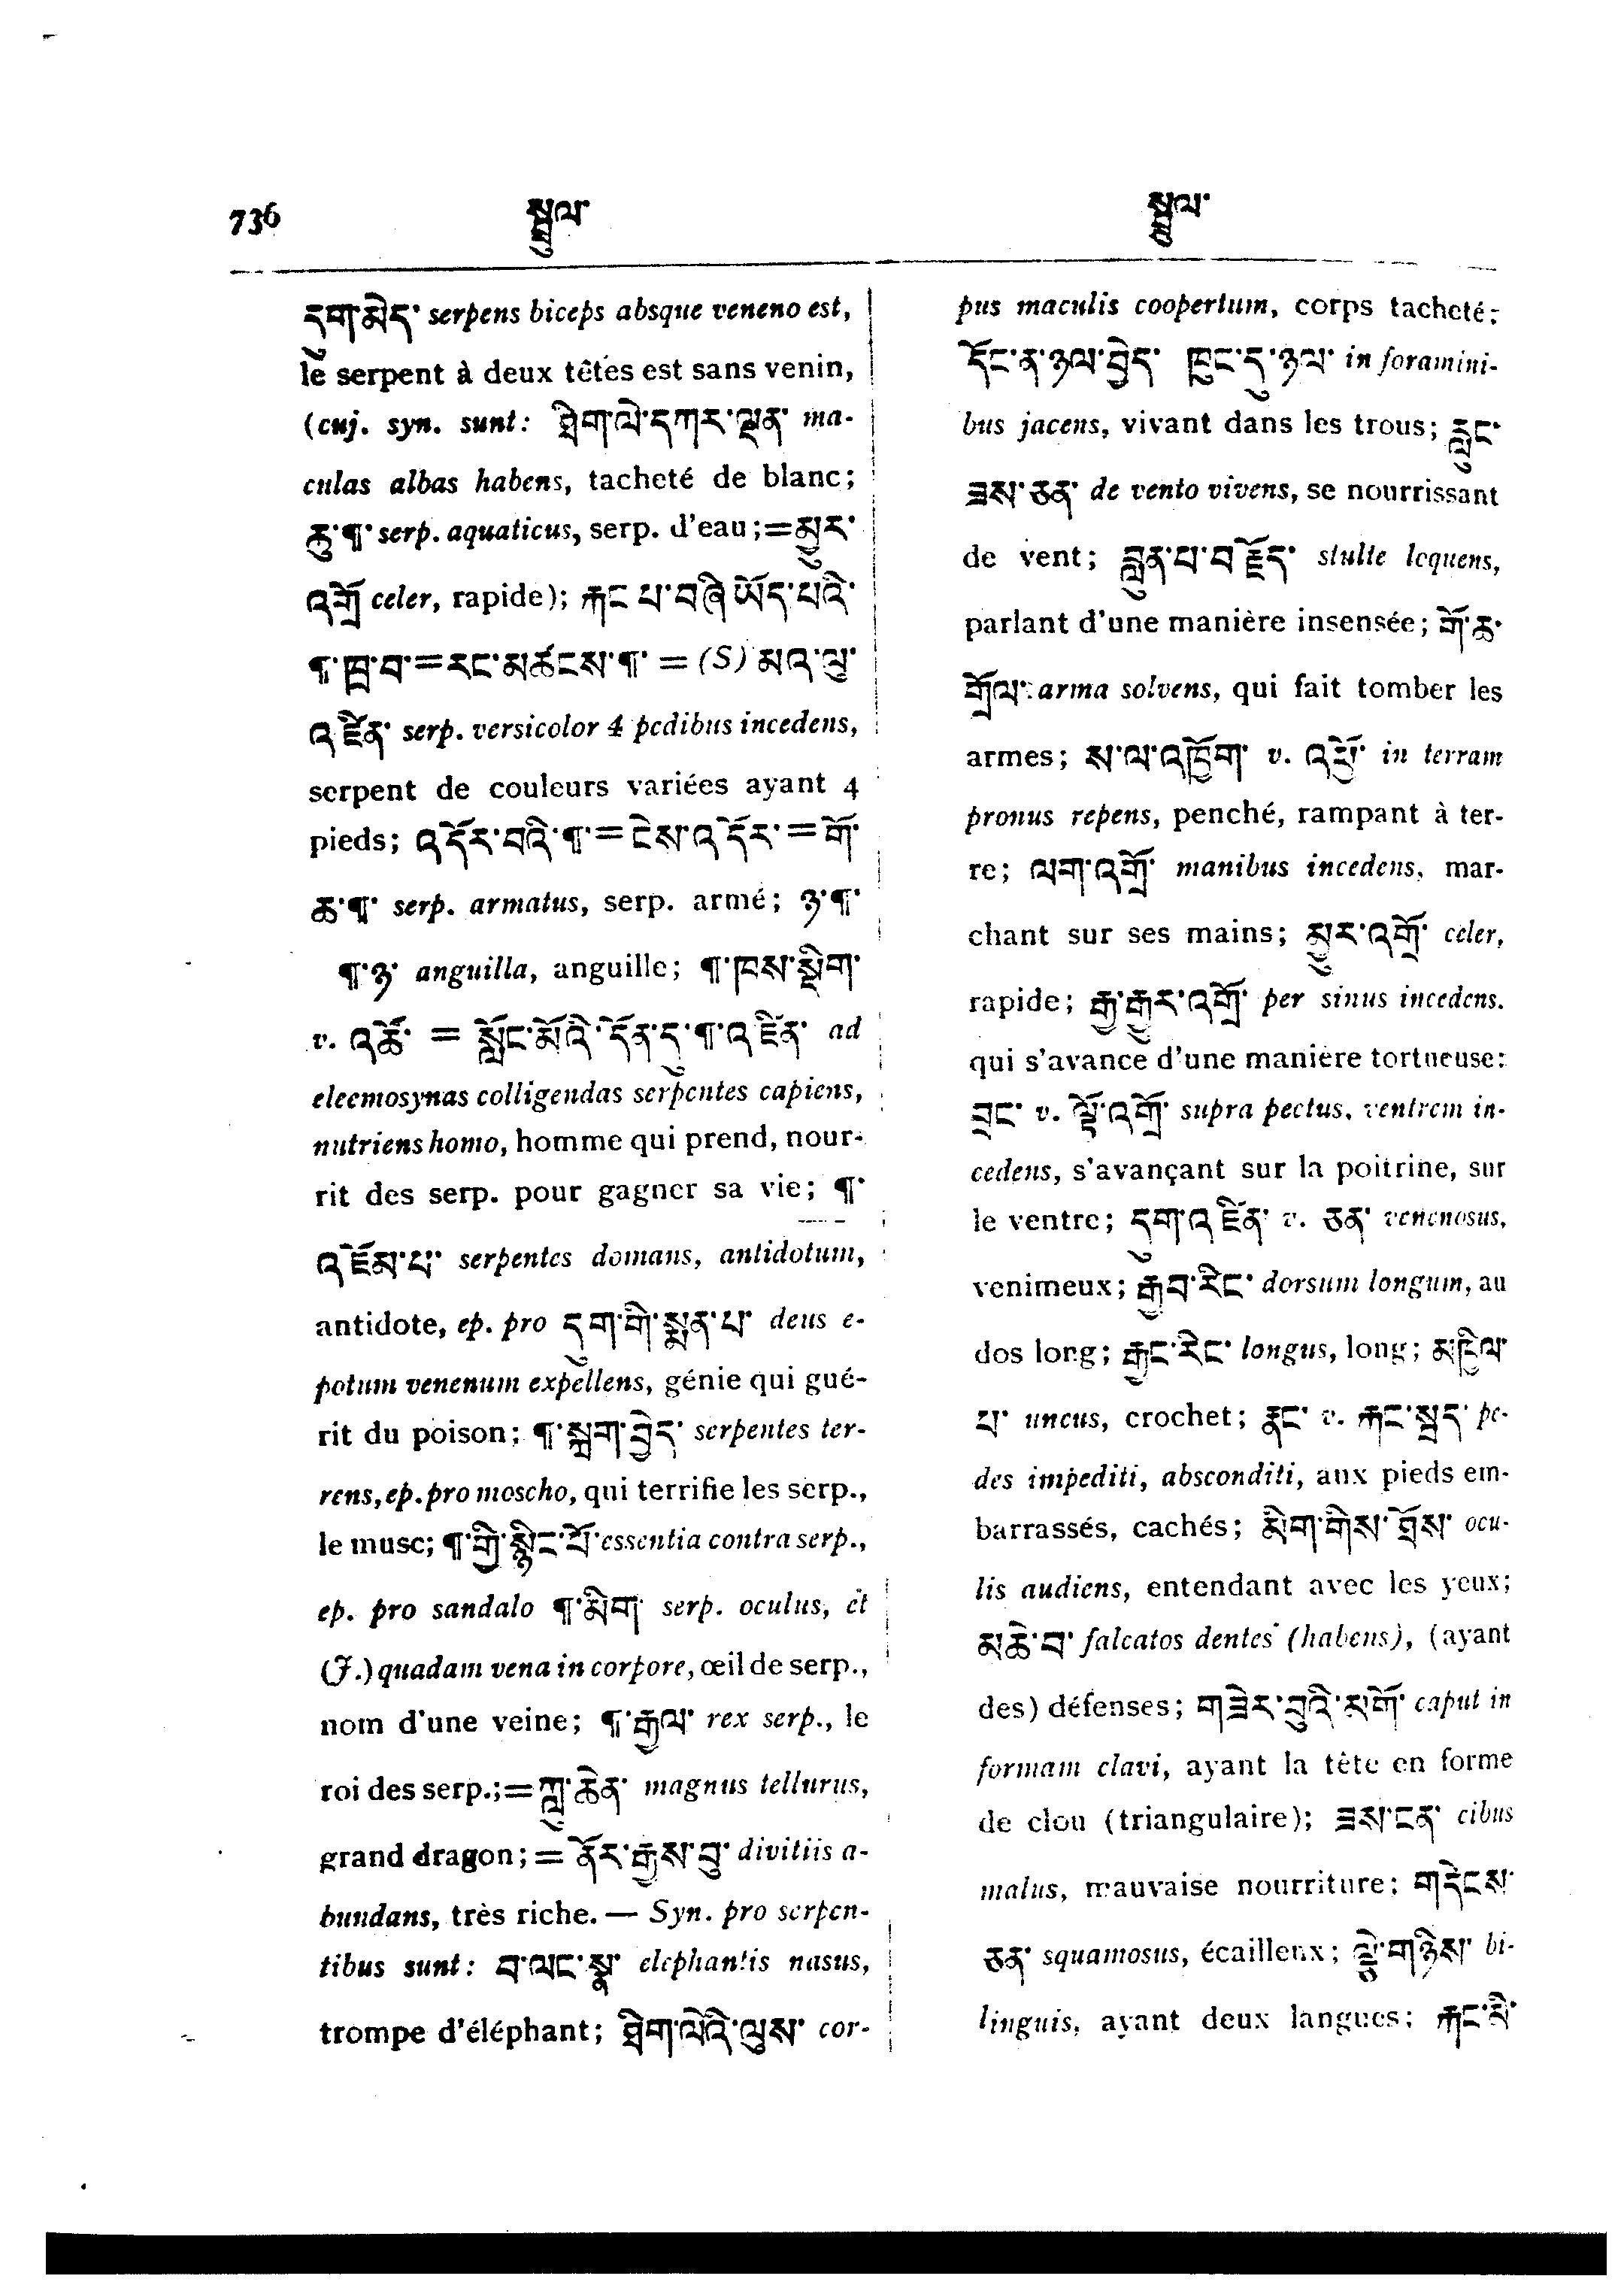 736
སྦྲུལ་
སྦྲུལ་
དུག་མེད་ serpens biceps absque veneno est,
le serpent à deux têtes est sans venin,
(cuj. syn. sunt: ཐིག་ལེ་དཀར་ལྡན་ ma-
culas albas habens, tacheté de blanc;
ཆུ་¶་ serp. aquaticus, serp. d'eau;=མྱུར་
འགྲོ celer, rapide); རྐང་པ་བཞི་ཡོད་པའི་
¶་ཁྲ་བ་=རང་མཚངས་¶་ = (S) མའ་ལུ་
འཛིན་ serp. versicolor 4 pedibus incedens,
serpent de couleurs variées ayant 4
pieds; འདོར་བའི་¶་=ངེས་འདོར་=གོ་
ཆ་¶་ serp. armatus, serp. armé; ཉ་¶་
¶་ཉ་ anguilla, anguille; ¶་ཁས་སྡིག་
v. འཚོ་ = སློང་མོའི་དོན་དུ་¶་འཛིན་ ad
eleemosynas colligendas serpentes capiens,
nutriens homo, homme qui prend, nour-
rit des serp. pour gagner sa vie; ¶་
འཇོམས་པ་ serpentes domans, antidotum,
antidote, ep. pro དུག་གི་སྨན་པ་ deus e-
potum venenum expellens, génie qui gué-
rit du poison; ¶་སྐྲག་བྱེད་ serpentes ter-
rens, ep. pro moscho, qui terrifie les serp.,
le musc; ¶་གྱི་སྙིང་པོ་ essentia contra serp.,
ep. pro sandalo ¶་མིག་ serp. oculus, et
(J.) quadam vena in corpore, œil de serp.,
nom d'une veine; ¶་རྒྱལ་ rex serp., le
roi des serp.;=ཀླུ་ཆེན་ magnus tellurus,
grand dragon;=ནོར་རྒྱས་བུ་ divitiis a-
bundans, très riche. — Syn. pro serpen-
tibus sunt: བ་ལང་སྣ་ elephantis nasus,
trompe d'éléphant; ཐིག་ལེའི་ལུས་ cor-
pus maculis coopertum, corps tacheté;
དོང་ན་ཉལ་བྱེད་ ཁུང་དུ་ཉལ་ in foramini-
bus jacens, vivant dans les trous; རླུང་
ཟས་ཅན་ de vento vivens, se nourrissant
de vent; བླུན་པ་བརྗོད་ stulte loquens,
parlant d'une manière insensée; གོ་ཆ་
གྲོལ་ arma solvens, qui fait tomber les
armes; ས་ལ་འཁྱོག་ v. འཕྱོ་ in terram
pronus repens, penché, rampant à ter-
re; ལག་འགྲོ་ manibus incedens, mar-
chant sur ses mains; མྱུར་འགྲོ་ celer,
rapide; རྒྱ་རྒྱུར་འགྲོ་ per sinus incedens.
qui s'avance d'une manière tortueuse:
བྲང་ v. ལྟོ་འགྲོ་ supra pectus, ventrem in-
cedens, s'avançant sur la poitrine, sur
le ventre; དུག་འཛིན་ v. ཅན་ venenosus,
venimeux; རྒྱབ་རིང་ dorsum longum, au
dos long; རྒྱང་རིང་ longus, long; མཁྱིལ་
པ་ uncus, crochet; རྣང་ v. རྐང་སྦད་ pe-
des impediti, absconditi, aux pieds em-
barrassés, cachés; མིག་གིས་ཐོས་ ocu-
lis audiens, entendant avec les yeux;
མཆེ་བ་ falcatos dentes (habens), (ayant
des) défenses; གཟེར་བུའི་མགོ་ caput in
formam clavi, ayant la tête en forme
de clou (triangulaire); ཟས་ངན་ cibus
malus, mauvaise nourriture; གདེངས་
ཅན་ squamosus, écailleux; ལྕེ་གཉིས་ bi-
linguis, ayant deux langues; རྐང་མི་